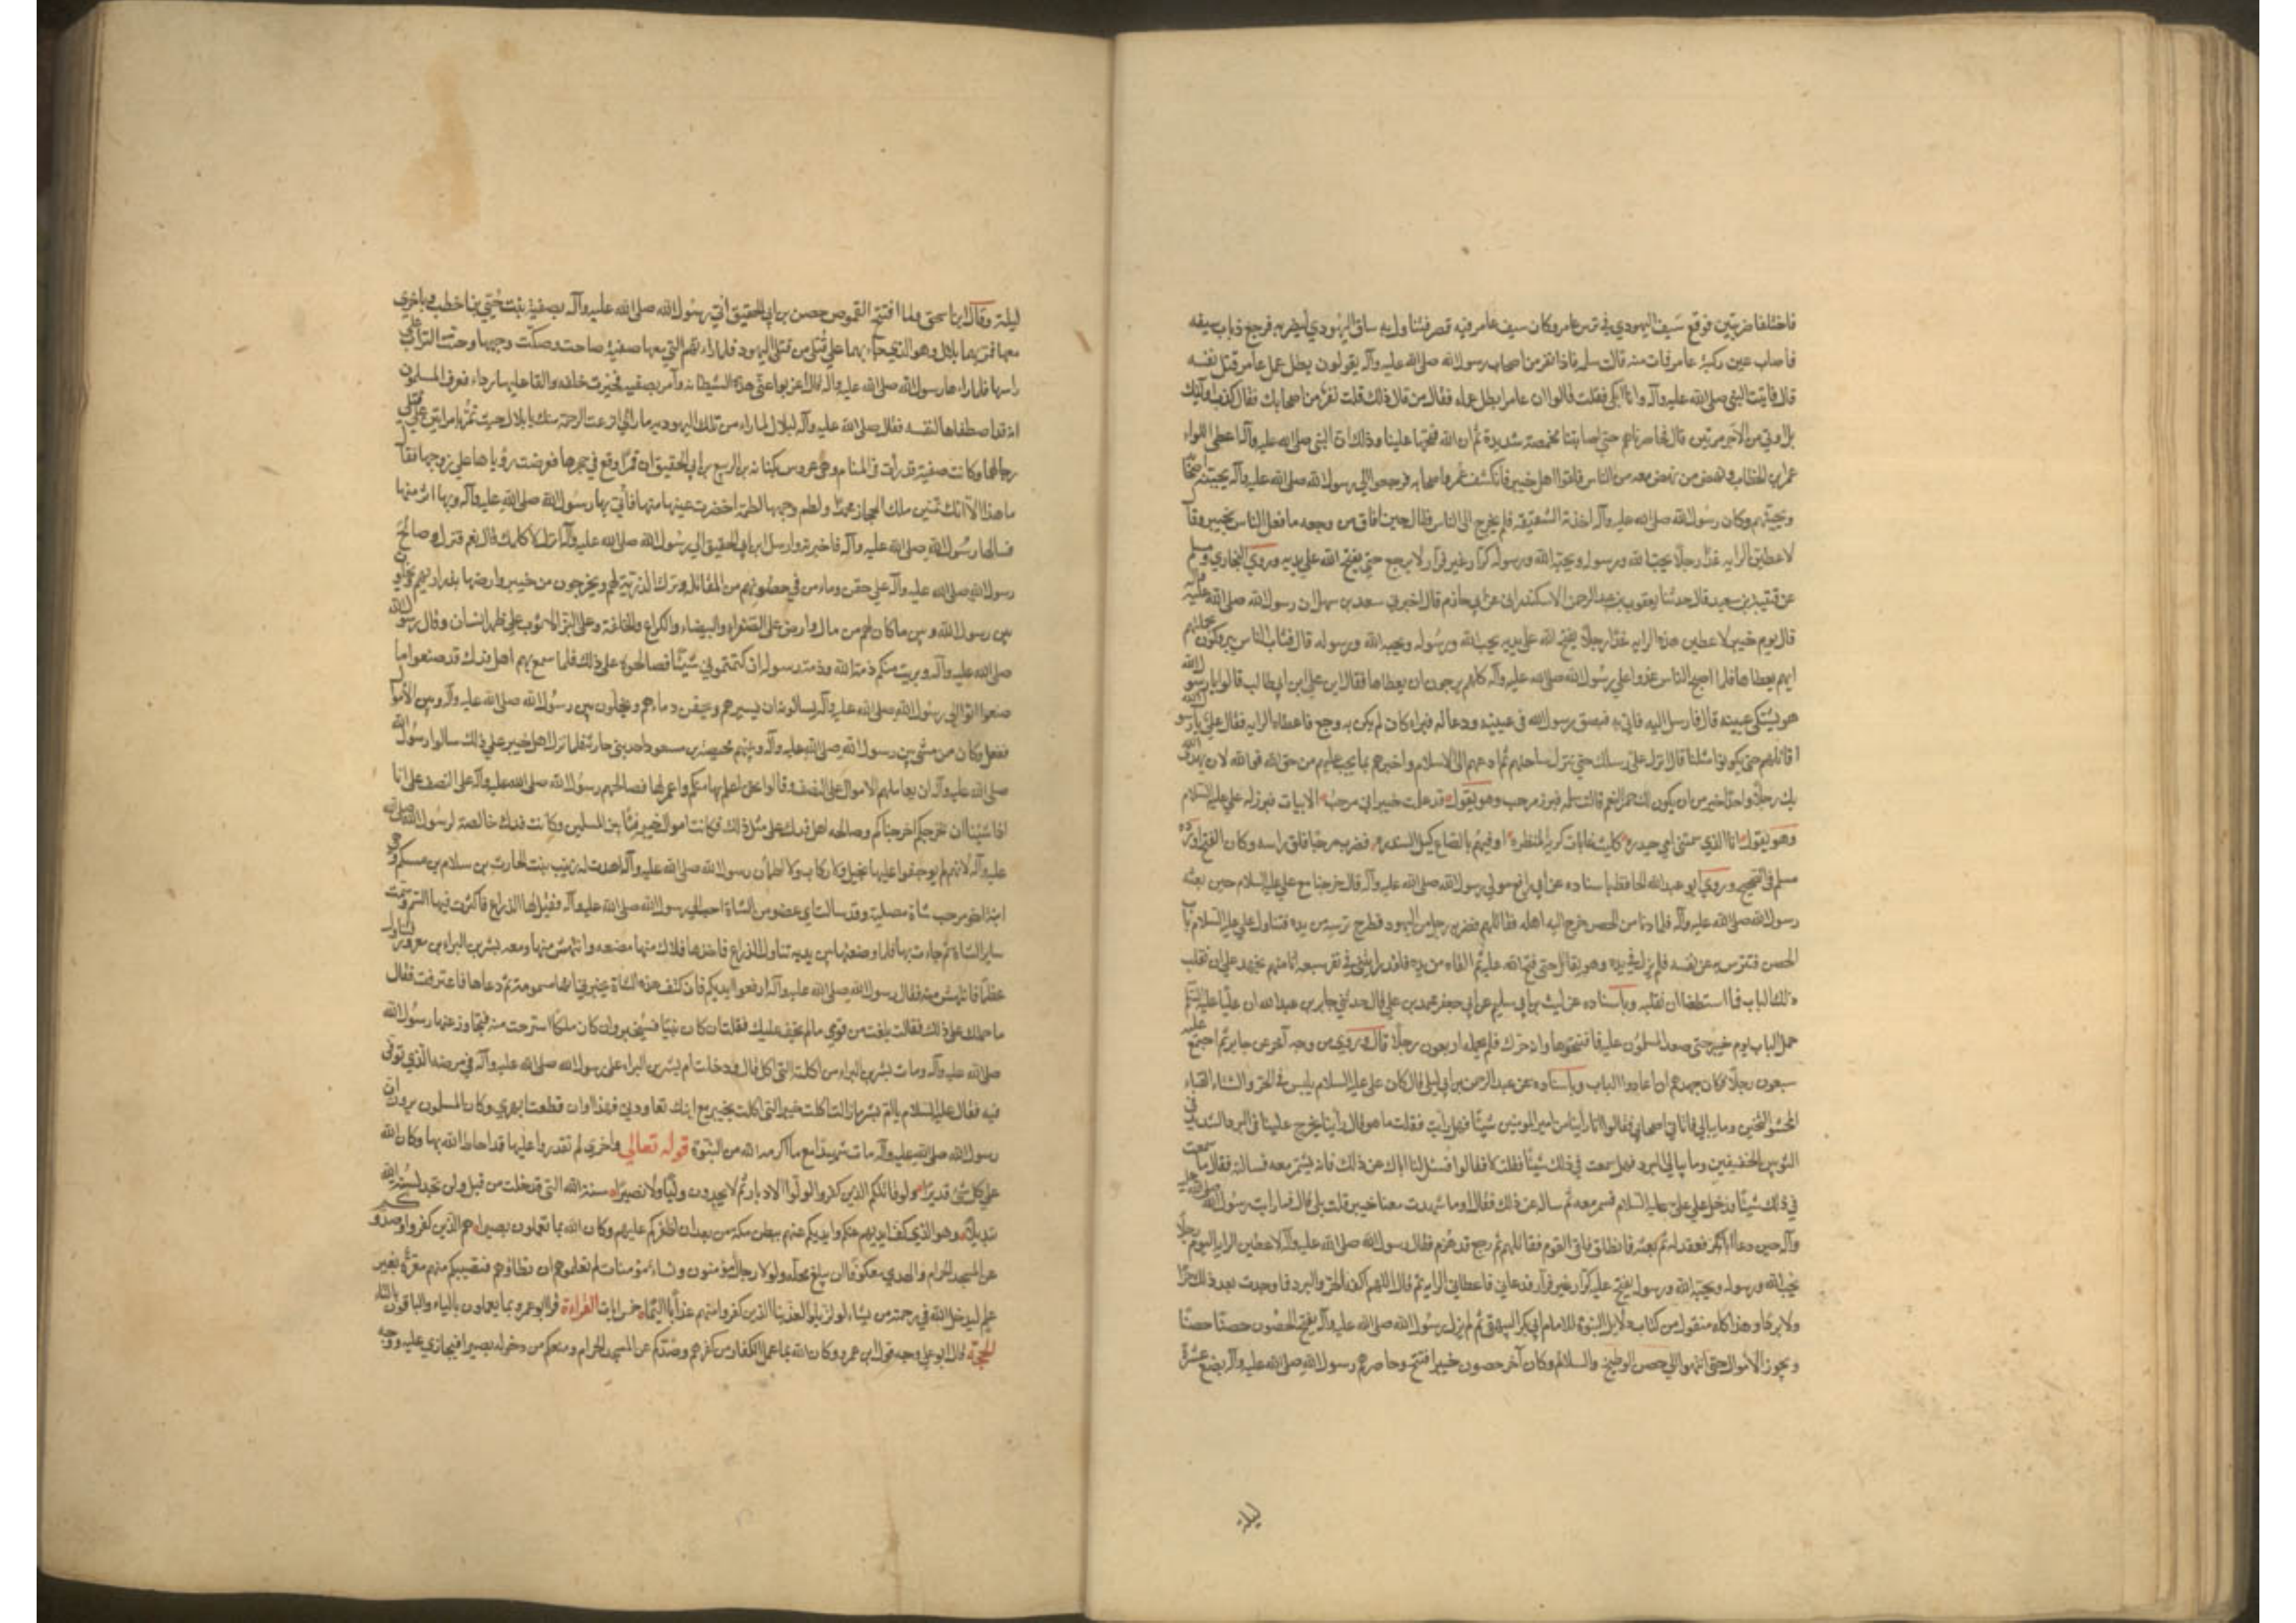 فاختلفا ضربتين فوقع سيف اليهودي في ترس عامر وكان سيف عامر فيه قصر فتناول به ساق اليهودي ليضربه فرجع ذباب سيفه
فاصاب عين ركبة عامر فمات منه قال سلمة فاذا نفر من اصحاب رسول الله صلى الله عليه وآله يقولون بطل عمل عامر قتل نفسه
قال فاتيت النبي صلى الله عليه وآله وانا ابكي فقلت قالوا ان عامرا بطل عمله فقال من قال ذلك قلت نفر من اصحابك فقال كذب اولئك
بل اوتي من الاجر مرتين قال فحاصرناهم حتى اصابتنا مخمصة شديدة ثم ان الله فتحها علينا وذلك ان النبي صلى الله عليه وآله اعطى اللواء
عمر بن الخطاب ونهض من نهض معه من الناس فلقوا اهل خيبر فانكشف عمر واصحابه فرجعوا الى رسول الله صلى الله عليه وآله يجبنه اصحابه
ويجبنهم وكان رسول الله صلى الله عليه وآله اخذته الشقيقة فلم يخرج الى الناس فقال حين افاق من وجعه ما فعل الناس بخيبر وقا
لاعطين الراية غدا رجلا يحب الله ورسوله ويحبه الله ورسوله كرار غير فرار لا يرجع حتى يفتح الله على يديه وروى البخاري ومسلم
عن قتيبة بن سعيد قال حدثنا يعقوب بن عبد الرحمن الاسكندراني عن ابي حازم قال اخبرني سعد بن سهل ان رسول الله صلى الله عليه وآله
قال يوم خيبر لاعطين هذه الراية غدا رجلا يفتح الله على يديه يحب الله ورسوله ويحبه الله ورسوله قال فبات الناس يدوكون بجملتهم
ايهم يعطاها فلما اصبح الناس غدوا على رسول الله صلى الله عليه وآله كلهم يرجون ان يعطاها فقال اين علي ابن ابي طالب قالوا يا رسول الله
هو يشتكي عينيه قال فارسل اليه فاتي به فبصق رسول الله في عينيه ودعا له فبرا كان لم يكن به وجع فاعطاه الراية فقال علي يا رسول الله
اقاتلهم حتى يكونوا مثلنا قال انزل على رسلك حتى تنزل بساحتهم ثم ادعهم الى الاسلام واخبرهم بما يجب عليهم من حق الله فوالله لان يهدي الله
بك رجلا واحدا خير من ان يكون لك حمر النعم قال سلمة فبرز مرحب وهو يقول قد علمت خيبر اني مرحب الابيات فبرز له علي عليه السلام
وهو يقول انا الذي سمتني امي حيدرة كليث غابات كريه المنظرة اوفيهم بالصاع كيل السندرة فضرب مرحبا ففلق راسه وكان الفتح اورده
مسلم في الصحيح وروى ابو عبد الله الحافظ باسناده عن ابي رافع مولى رسول الله صلى الله عليه وآله قال خرجنا مع علي عليه السلام حين بعثه
رسول الله صلى الله عليه وآله فلما دنا من الحصن خرج اليه اهله فقاتلهم فضربه رجل من اليهود فطرح ترسه من يده فتناول علي عليه السلام باب
الحصن فتترس به عن نفسه فلم يزل في يده وهو يقاتل حتى فتح الله عليه ثم القاه من يده فلقد رايتني في نفر سبعة انا منهم نجهد على ان نقلب
ذلك الباب فما استطعنا ان نقلبه وباسناده عن ليث بن ابي سليم عن ابي جعفر محمد بن علي قال حدثني جابر بن عبد الله ان عليا عليه السلام
حمل الباب يوم خيبر حتى صعد المسلمون عليه فاقتحموها وانه حرك فلم يحمله اربعون رجلا قال وروي من وجه آخر عن جابر ثم اجتمع عليه
سبعون رجلا فكان جهدهم ان اعادوا الباب وباسناده عن عبد الرحمن بن ابي ليلى قال كان علي عليه السلام يلبس في الحر والشتاء القباء
المحشو الثخين وما يبالي الحر فاتاني اصحابي فقالوا انا راينا من امير المؤمنين شيئا فهل رايت فقلت ما هو قالوا راينا يخرج علينا في البرد الشديد في
الثوبين الخفيفين وما يبالي البرد فهل سمعت في ذلك شيئا فقلت لا فقالوا فسئل لنا اباك عن ذلك فانه يسمر معه فسالته فقال ما سمعت
في ذلك شيئا فدخل على علي عليه السلام فسمر معه ثم ساله عن ذلك فقال اوما شهدت معنا خيبر قلت بلى قال فما رايت رسول الله صلى الله عليه
وآله حين دعا ابا بكر فعقد له ثم بعثه فانطلق فلقي القوم فقاتلهم ثم رجع قد هزم فقال رسول الله صلى الله عليه وآله لاعطين الراية اليوم رجلا
يحب الله ورسوله ويحبه الله ورسوله يفتح عليه كرار غير فرار فدعاني فاعطاني الراية ثم قال اللهم اكفه الحر والبرد فما وجدت بعد ذلك حرا
ولا بردا وهذا كله منقول من كتاب دلايل النبوة للامام ابي بكر البيهقي ثم لم يزل رسول الله صلى الله عليه وآله يفتح الحصون حصنا حصنا
ويحوز الاموال حتى انتهوا الى حصن الوطيح والسلالم وكان آخر حصون خيبر افتتح وحاصرهم رسول الله صلى الله عليه وآله بضع عشرة
ليلة
ليلة وقال ابن اسحق ولما افتتح القموص حصن بن ابي الحقيق اتي رسول الله صلى الله عليه وآله بصفية بنت حيي بن اخطب وباخرى
معها فمر بهما بلال وهو الذي جاء بهما على قتلى من قتلى اليهود فلما راتهم التي معها صفية صاحت وصكت وجهها وحثت التراب على
راسها فلما راها رسول الله صلى الله عليه وآله قال اعزبوا عني هذه الشيطانة وامر بصفية فحيزت خلفه والقا عليها رداءه فعرف المسلمون
انه قد اصطفاها لنفسه فقال صلى الله عليه وآله لبلال لما راى من تلك اليهودية ما راى انزعت الرحمة منك يا بلال حيث تمر بامراتين على قتلى
رجالهما وكانت صفية قد رات في المنام وهي عروس بكنانة بن الربيع بن ابي الحقيق ان قمرا وقع في حجرها فعرضت رؤياها على زوجها فقال
ما هذا الا انك تمنين ملك الحجاز محمدا ولطم وجهها لطمة اخضرت عينها منها فاتي بها رسول الله صلى الله عليه وآله وبها اثر منها
فسالها رسول الله صلى الله عليه وآله فاخبرته وارسل ابن ابي الحقيق الى رسول الله صلى الله عليه وآله انزل لاكلمك قال نعم فنزل وصالح
رسول الله صلى الله عليه وآله على حقن دماء من في حصونهم من المقاتلة وترك الذرية لهم ويخرجون من خيبر وارضها بذراريهم ويخلون
بين رسول الله وبين ما كان لهم من مال وارض على الصفراء والبيضاء والكراع والحلقة وعلى البز الا ثوب على ظهر انسان وقال رسول الله
صلى الله عليه وآله وبريت منكم ذمة الله وذمة رسوله ان كتمتموني شيئا فصالحوه على ذلك فلما سمع بهم اهل فدك قد صنعوا ما
صنعوا اتوا الى رسول الله صلى الله عليه وآله يسالونه ان يسيرهم ويحقن دماءهم ويخلون بين رسول الله صلى الله عليه وآله وبين الاموال
ففعل وكان من مشى بين رسول الله صلى الله عليه وآله وبينهم محيصة بن مسعود احد بني حارثة فلما نزل اهل خيبر على ذلك سالوا رسول الله
صلى الله عليه وآله ان يعاملهم الاموال على النصف وقالوا نحن اعلم بها منكم واعمر لها فصالحهم رسول الله صلى الله عليه وآله على النصف على انا
اذا شئنا ان نخرجكم اخرجناكم وصالحه اهل فدك على مثل ذلك فكانت اموال خيبر فيئا بين المسلمين وكانت فدك خالصة لرسول الله صلى الله
عليه وآله لانهم لم يوجفوا عليها بخيل ولا ركاب ولما اطمأن رسول الله صلى الله عليه وآله اهدت له زينب بنت الحارث بن سلام بن مشكم وهي
ابنة اخي مرحب شاة مصلية وقد سالت اي عضو من الشاة احب الى رسول الله صلى الله عليه وآله فقيل لها الذراع فاكثرت فيها السم وسمت
ساير الشاة ثم جاءت بها فلما وضعتها بين يديه تناول الذراع فاخذها فلاك منها مضغة وانتهش منها ومعه بشر بن البراء بن معرور فتناول
عظما فانتهش منه فقال رسول الله صلى الله عليه وآله ارفعوا ايديكم فان كتف هذه الشاة يخبرني انها مسمومة ثم دعاها فاعترفت فقال
ما حملك على ذلك فقالت بلغت من قومي ما لم يخف عليك فقلت ان كان نبيا فسيخبر وان كان ملكا استرحت منه فتجاوز عنها رسول الله
صلى الله عليه وآله ومات بشر بن البراء من اكلته التي اكل قال ودخلت ام بشر بن البراء على رسول الله صلى الله عليه وآله في مرضه الذي توفي
فيه فقال عليه السلام يا ام بشر ما زالت اكلة خيبر التي اكلت بخيبر مع ابنك تعاودني فهذا اوان قطعت ابهري وكان المسلمون يرون ان
رسول الله صلى الله عليه وآله مات شهيدا مع ما اكرمه الله من النبوة قوله تعالى واخرى لم تقدروا عليها قد احاط الله بها وكان الله
على كل شئ قديرا ولو قاتلكم الذين كفروا لولوا الادبار ثم لا يجدون وليا ولا نصيرا سنة الله التي قد خلت من قبل ولن تجد لسنة الله
تبديلا وهو الذي كف ايديهم عنكم وايديكم عنهم ببطن مكة من بعد ان اظفركم عليهم وكان الله بما تعملون بصيرا هم الذين كفروا وصدوكم
عن المسجد الحرام والهدي معكوفا ان يبلغ محله ولولا رجال مؤمنون ونساء مؤمنات لم تعلموهم ان تطاؤهم فتصيبكم منهم معرة بغير
علم ليدخل الله في رحمته من يشاء لو تزيلوا لعذبنا الذين كفروا منهم عذابا اليما خمس ايات القراءة قرا ابو عمرو بما يعملون بالياء والباقون بالتاء
الحجة قال ابو علي وجه قول ابي عمرو وكان الله بما عمل الكفار من كفرهم وصدكم عن المسجد الحرام ومنعكم من دخوله بصيرا فيجازي عليه ووجه